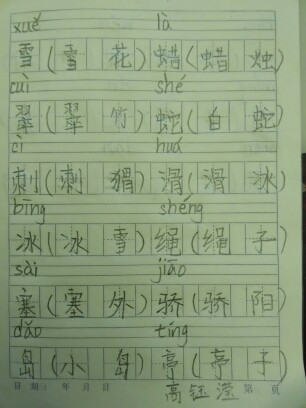 xuě là
雪(雪花)蜡(蜡烛)
cuì shé
翠(翠竹)蛇(白蛇)
cì huá
刺(刺猬)滑(滑冰)
bīng shéng
冰(冰雪)绳(绳子)
sài jiāo
塞(塞外)骄(骄阳)
dǎo tíng
岛(小岛)亭(亭子)
日期: 年 月 日 高钰滢 第 页